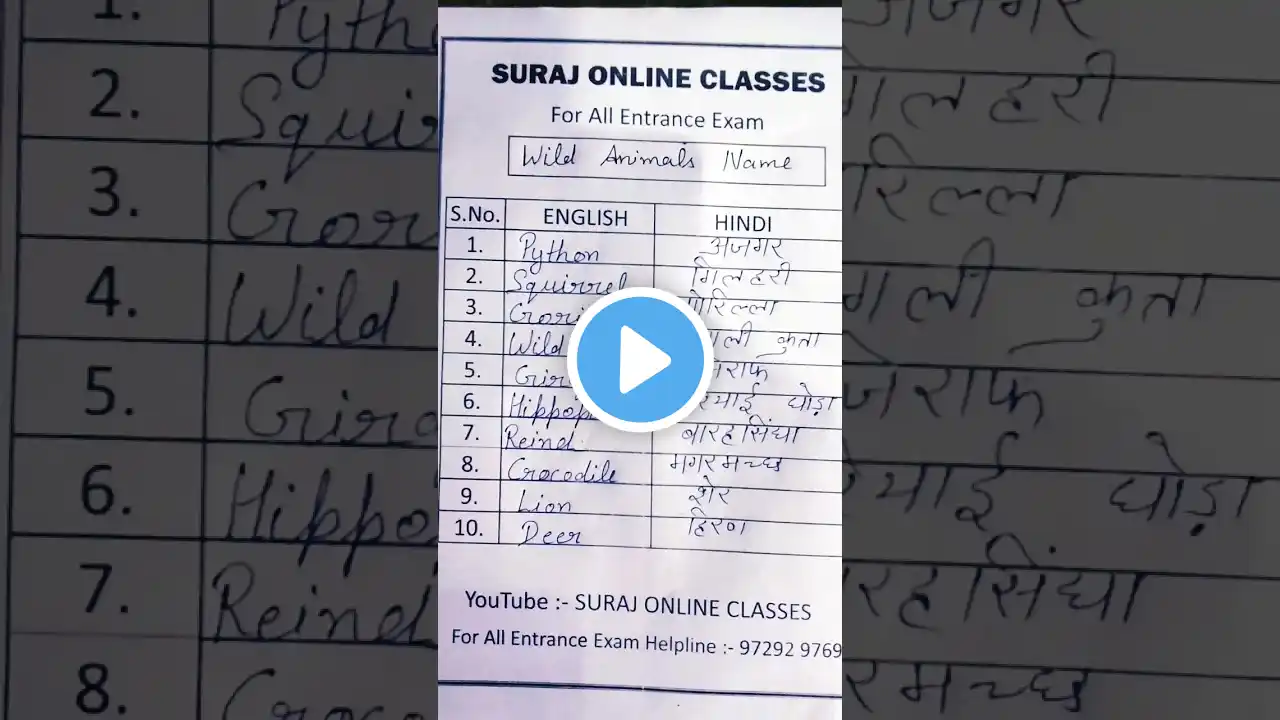 SURAJ ONLINE CLASSES
For All Entrance Exam
Wild Animals Name
S.No. ENGLISH HINDI
1. Python अजगर
2. Squirrel गिलहरी
3.
4. Wild कुत्ता
5.
6. घोड़ा
7. Reind. बारहसिंघा
8. Crocodile मगरमच्छ
9. Lion शेर
10. Deer हिरण
YouTube :- SURAJ ONLINE CLASSES
For All Entrance Exam Helpline :- 97292 9769